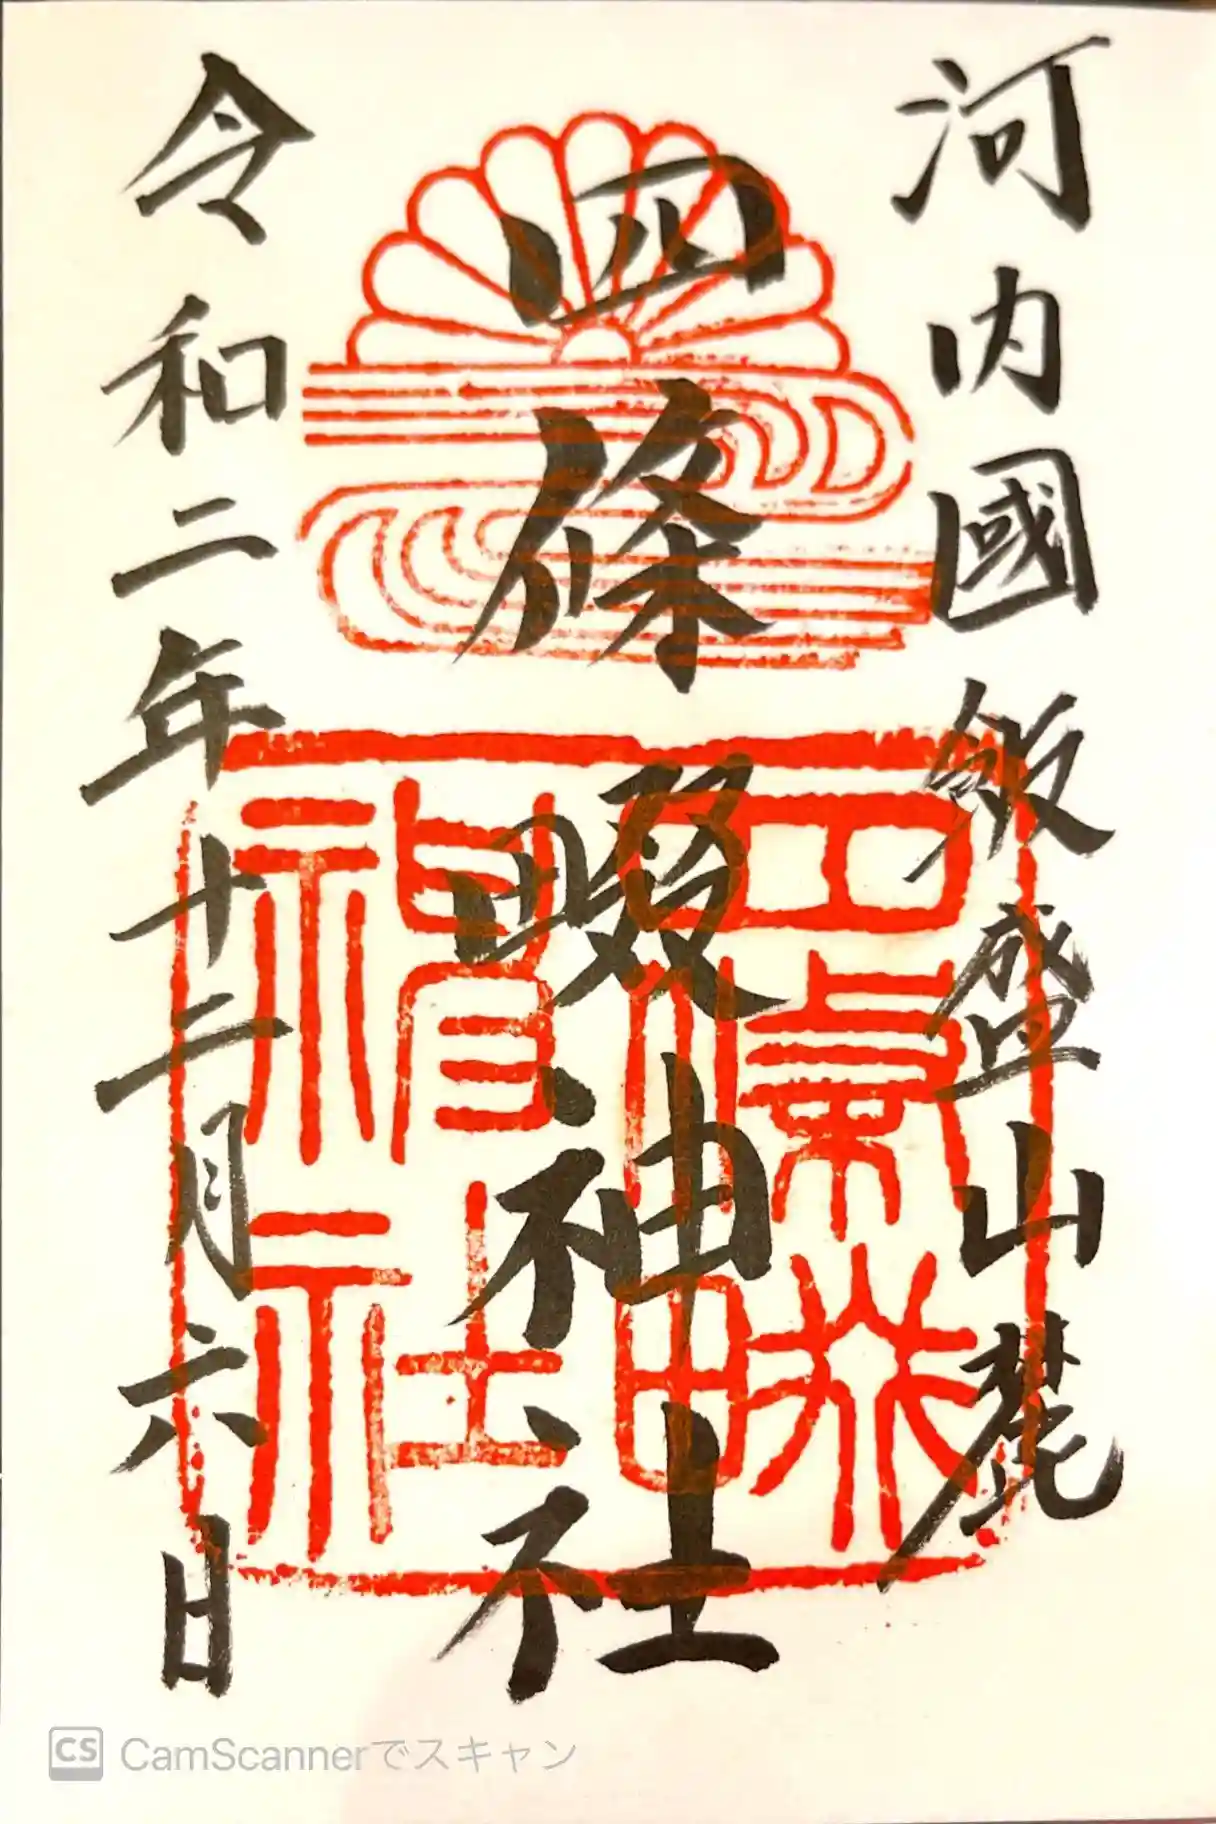 河内國飯盛山麓
四條畷神社
令和二年十二月六日
四條畷神社
CS CamScannerでスキャン